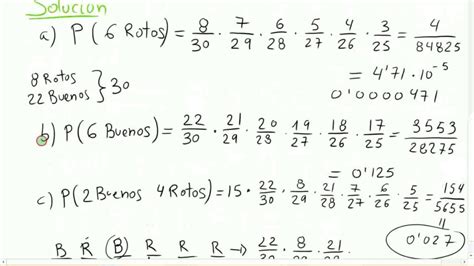 Solución
a) P(6 Rotos) = 8/30 · 7/29 · 6/28 · 5/27 · 4/26 · 3/25 = 4/84825
= 4'71 · 10⁻⁵
0'0000471
8 Rotos
22 Buenos } 30
b) P(6 Buenos) = 22/30 · 21/29 · 20/28 · 19/27 · 18/26 · 17/25 = 3553/28275
= 0'125
c) P(2 Buenos 4 Rotos) = 15 · 22/30 · 8/29 · 21/28 · 7/27 · 6/26 · 5/25 = 154/5655
=
0'027
B R (B) R R R → 22/30 · 8/29 · 21/28